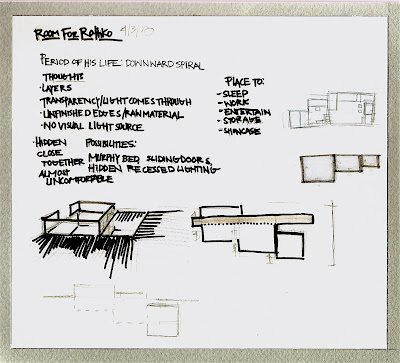 ROOM FOR ROTHKO
PERIOD OF HIS LIFE: DOWNWARD SPIRAL
THOUGHTS
·LAYERS
·TRANSPARENCY/LIGHT COMES THROUGH
·UNFINISHED EDGES/RAW MATERIAL
·NO VISUAL LIGHT SOURCE
·HIDDEN POSSIBILITIES:
CLOSE
TOGETHER MURPHY BED, SLIDING DOORS,
ALMOST HIDDEN RECESSED LIGHTING
UNCOMFORTABLE
PLACE TO:
-SLEEP
-WORK
-ENTERTAIN
-STORAGE
-SHOWCASE